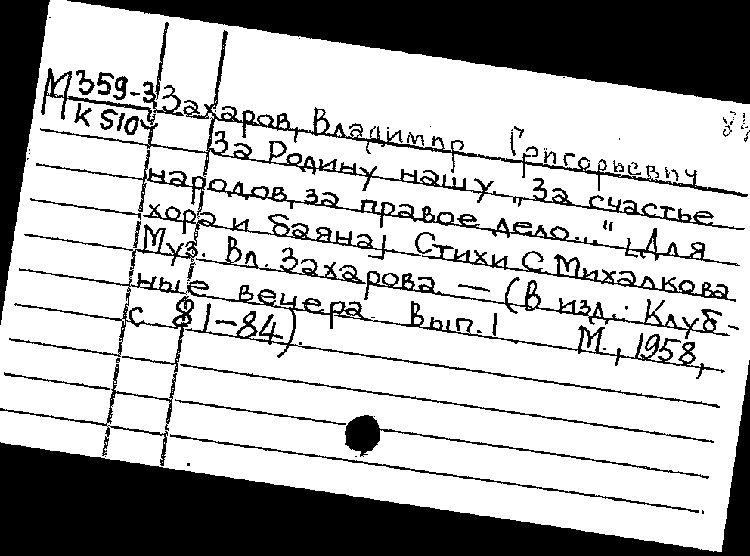 М 359-3
К 510
Захаров, Владимир Григорьевич
За Родину нашу. "За счастье
народов, за правое дело..." [Для
хора и баяна] Стихи С. Михалкова
Муз. Вл. Захарова. — (В изд.: Клуб-
ные вечера. Вып. 1. М., 1958,
с 81-84).